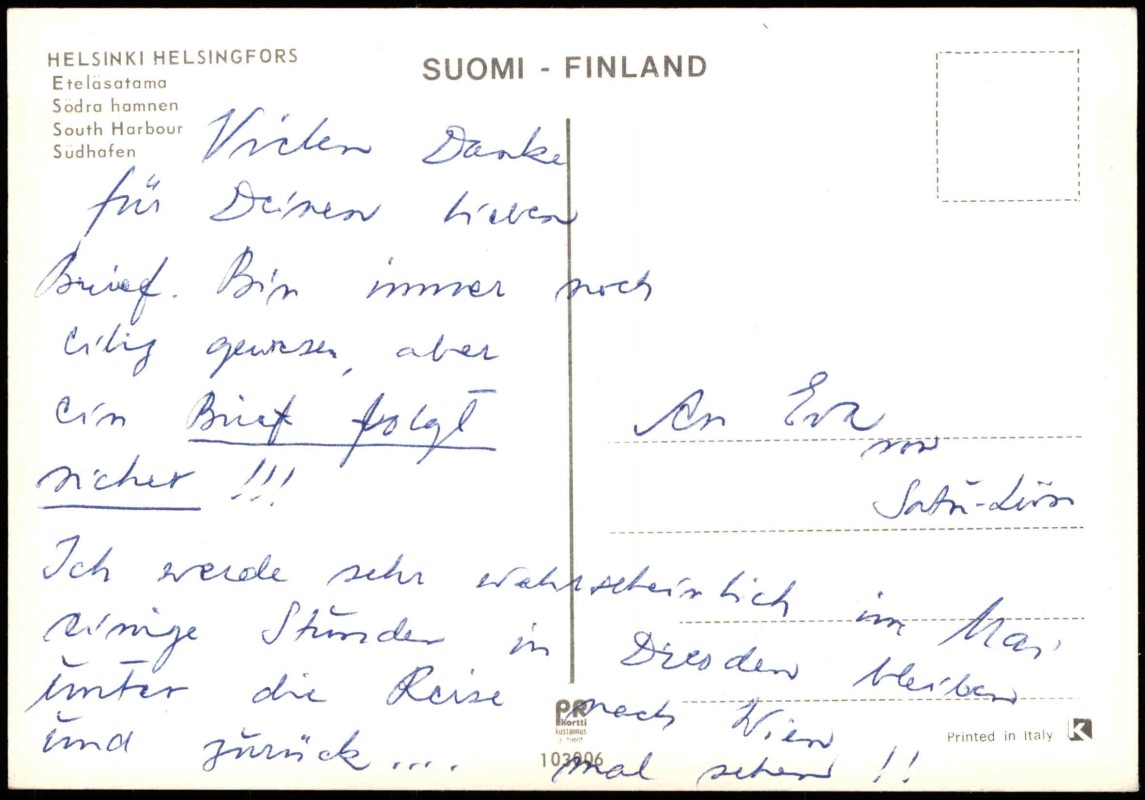 HELSINKI HELSINGFORS
Eteläsatama
Södra hamnen
South Harbour
Südhafen
SUOMI - FINLAND
Vielen Danke
für Deinen lieben
Brief. Bin immer noch
eilig gewesen, aber
ein Brief folgt
sicher !!!
Ich werde sehr wahrscheinlich im Mai
einige Stunden in Dresden bleiben
unter die Reise nach Wien
und zurück.... mal sehen !!
An Eva
von
PR
Kortti
kustannus
103806
Printed in Italy
K